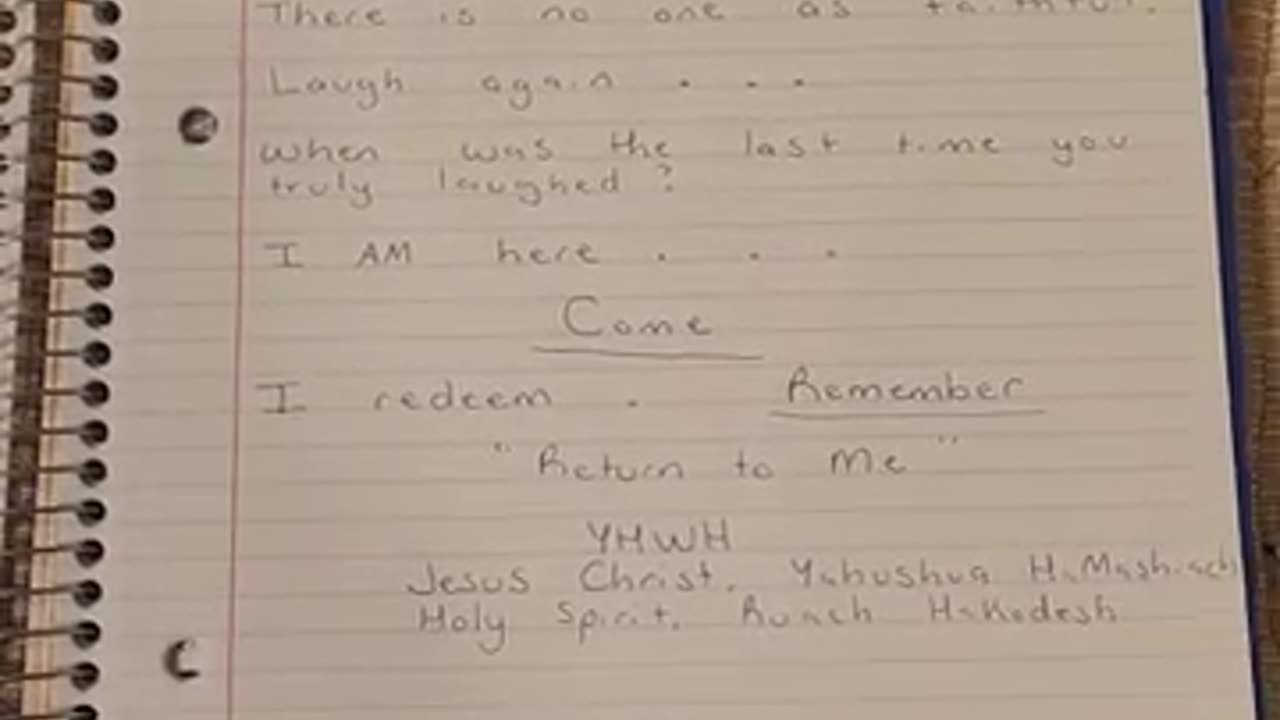 There is no one as faithful.
Laugh again . . .
When was the last time you
truly laughed?
I AM here . . .
Come
I redeem . Remember
"Return to Me"
YHWH
Jesus Christ. Yahushua HaMashiach
Holy Spirit. Ruach HaKodesh